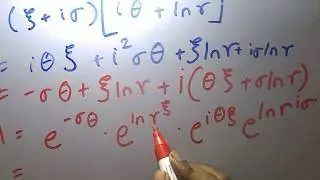 (ξ + iσ) [iθ + ln r]
= iθξ + i²σθ + ξ ln r + iσ ln r
= -σθ + ξ ln r + i(θξ + σ ln r)
= e^{-σθ} · e^{ln r^ξ} · e^{iθξ} e^{ln r^{iσ}}
=